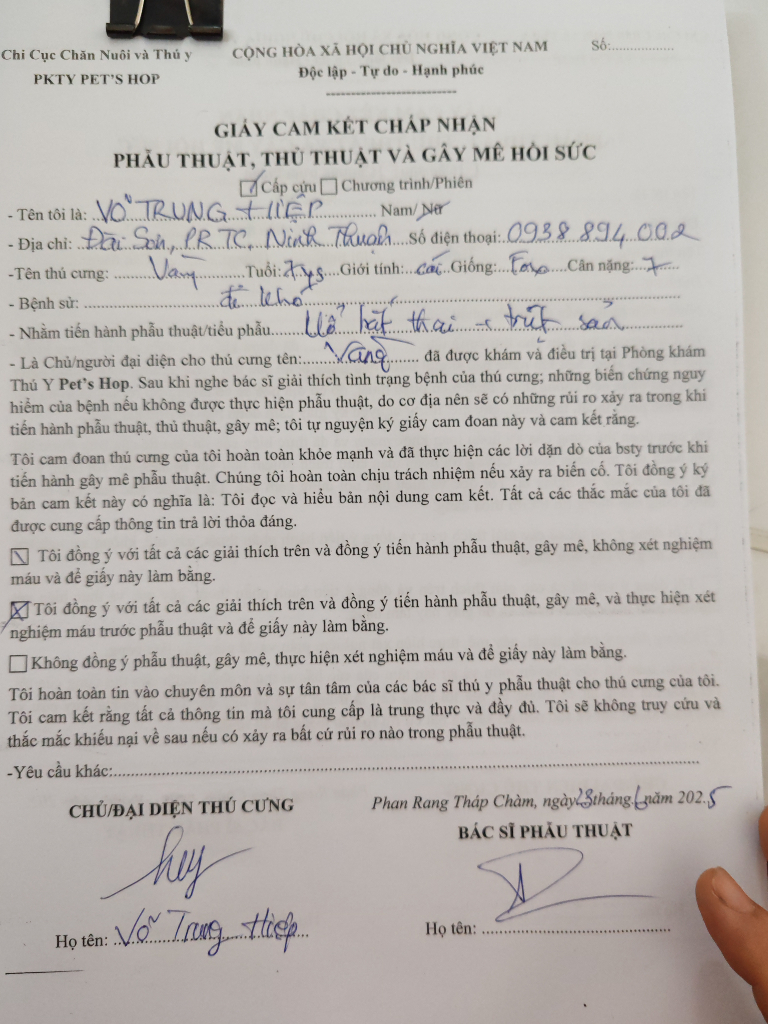 Chi Cục Chăn Nuôi và Thú y
PKTY PET'S HOP
CỘNG HÒA XÃ HỘI CHỦ NGHĨA VIỆT NAM
Độc lập - Tự do - Hạnh phúc
Số:.................
GIẤY CAM KẾT CHẤP NHẬN
PHẪU THUẬT, THỦ THUẬT VÀ GÂY MÊ HỒI SỨC
Cấp cứu Chương trình/Phiên
- Tên tôi là: VÕ TRUNG HIỆP Nam/ Nữ
- Địa chỉ: Đài Sơn, PR TC, Ninh Thuận Số điện thoại: 0938 894 002
-Tên thú cưng: Vàng Tuổi: 7 Giới tính: cái Giống: Cân nặng: 7
- Bệnh sử: đẻ khó
- Nhằm tiến hành phẫu thuật/tiểu phẫu Mổ bắt thai trừ sản
- Là Chủ/người đại diện cho thú cưng tên: Vàng đã được khám và điều trị tại Phòng khám
Thú Y Pet's Hop. Sau khi nghe bác sĩ giải thích tình trạng bệnh của thú cưng; những biến chứng nguy
hiểm của bệnh nếu không được thực hiện phẫu thuật, do cơ địa nên sẽ có những rủi ro xảy ra trong khi
tiến hành phẫu thuật, thủ thuật, gây mê; tôi tự nguyện ký giấy cam đoan này và cam kết rằng.
Tôi cam đoan thú cưng của tôi hoàn toàn khỏe mạnh và đã thực hiện các lời dặn dò của bsty trước khi
tiến hành gây mê phẫu thuật. Chúng tôi hoàn toàn chịu trách nhiệm nếu xảy ra biến cố. Tôi đồng ý ký
bản cam kết này có nghĩa là: Tôi đọc và hiểu bản nội dung cam kết. Tất cả các thắc mắc của tôi đã
được cung cấp thông tin trả lời thỏa đáng.
Tôi đồng ý với tất cả các giải thích trên và đồng ý tiến hành phẫu thuật, gây mê, không xét nghiệm
máu và để giấy này làm bằng.
Tôi đồng ý với tất cả các giải thích trên và đồng ý tiến hành phẫu thuật, gây mê, và thực hiện xét
nghiệm máu trước phẫu thuật và để giấy này làm bằng.
Không đồng ý phẫu thuật, gây mê, thực hiện xét nghiệm máu và để giấy này làm bằng.
Tôi hoàn toàn tin vào chuyên môn và sự tận tâm của các bác sĩ thú y phẫu thuật cho thú cưng của tôi.
Tôi cam kết rằng tất cả thông tin mà tôi cung cấp là trung thực và đầy đủ. Tôi sẽ không truy cứu và
thắc mắc khiếu nại về sau nếu có xảy ra bất cứ rủi ro nào trong phẫu thuật.
-Yêu cầu khác:
Phan Rang Tháp Chàm, ngày 23 tháng 6 năm 2025
CHỦ/ĐẠI DIỆN THÚ CƯNG
BÁC SĨ PHẪU THUẬT
Họ tên: Võ Trung Hiệp
Họ tên: